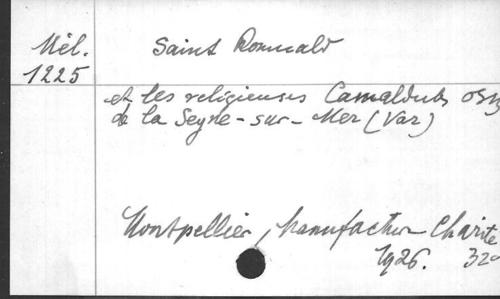 Mél.
1225
Saint Romuald
et les religieuses Camaldules
de la Seyne-sur-Mer (Var)
Montpellier, Manufacture Charité
1926.